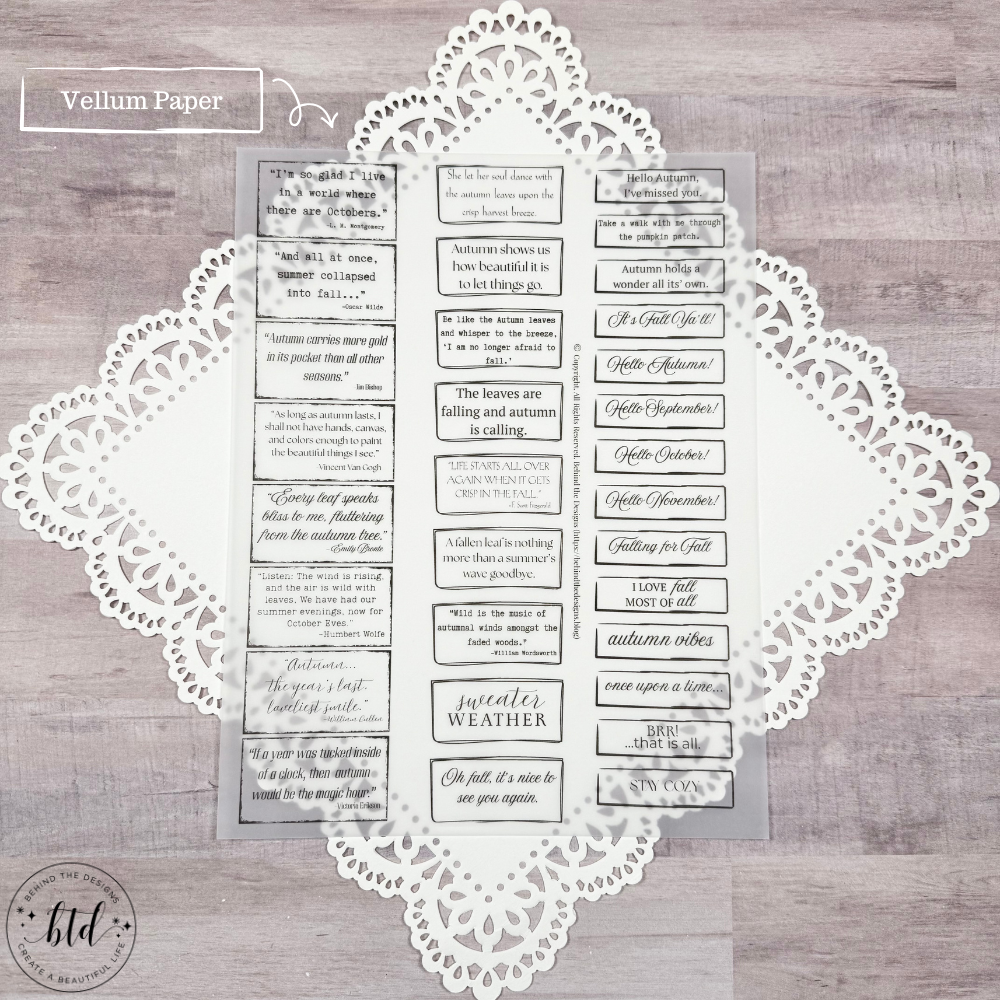 Vellum Paper
"I'm so glad I live
in a world where
there are Octobers."
-L. M. Montgomery
"And all at once,
summer collapsed
into fall..."
-Oscar Wilde
"Autumn carries more gold
in its pocket than all other
seasons."
Jim Bishop
"As long as autumn lasts, I
shall not have hands, canvas,
and colors enough to paint
the beautiful things I see."
-Vincent Van Gogh
"Every leaf speaks
bliss to me, fluttering
from the autumn tree."
-Emily Bronte
"Listen: The wind is rising,
and the air is wild with
leaves. We have had our
summer evenings, now for
October Eves."
-Humbert Wolfe
"Autumn...
the year's last,
loveliest smile."
-William Cullen
"If a year was tucked inside
of a clock, then autumn
would be the magic hour."
Victoria Erikson
She let her soul dance with
the autumn leaves upon the
crisp harvest breeze.
Autumn shows us
how beautiful it is
to let things go.
Be like the Autumn leaves
and whisper to the breeze,
'I am no longer afraid to
fall.'
The leaves are
falling and autumn
is calling.
"LIFE STARTS ALL OVER
AGAIN WHEN IT GETS
CRISP IN THE FALL."
-F. Scott Fitzgerald
A fallen leaf is nothing
more than a summer's
wave goodbye.
"Wild is the music of
autumnal winds amongst the
faded woods."
-William Wordsworth
sweater
WEATHER
Oh fall, it's nice to
see you again.
© Copyright, All Rights Reserved. Behind the Designs (https://behindthedesigns.blog)
Hello Autumn,
I've missed you.
Take a walk with me through
the pumpkin patch.
Autumn holds a
wonder all its' own.
It's Fall Ya'll!
Hello Autumn!
Hello September!
Hello October!
Hello November!
Falling for Fall
I LOVE fall
MOST OF all
autumn vibes
once upon a time...
BRR!
...that is all.
STAY COZY
BEHIND THE DESIGNS
btd
CREATE A BEAUTIFUL LIFE